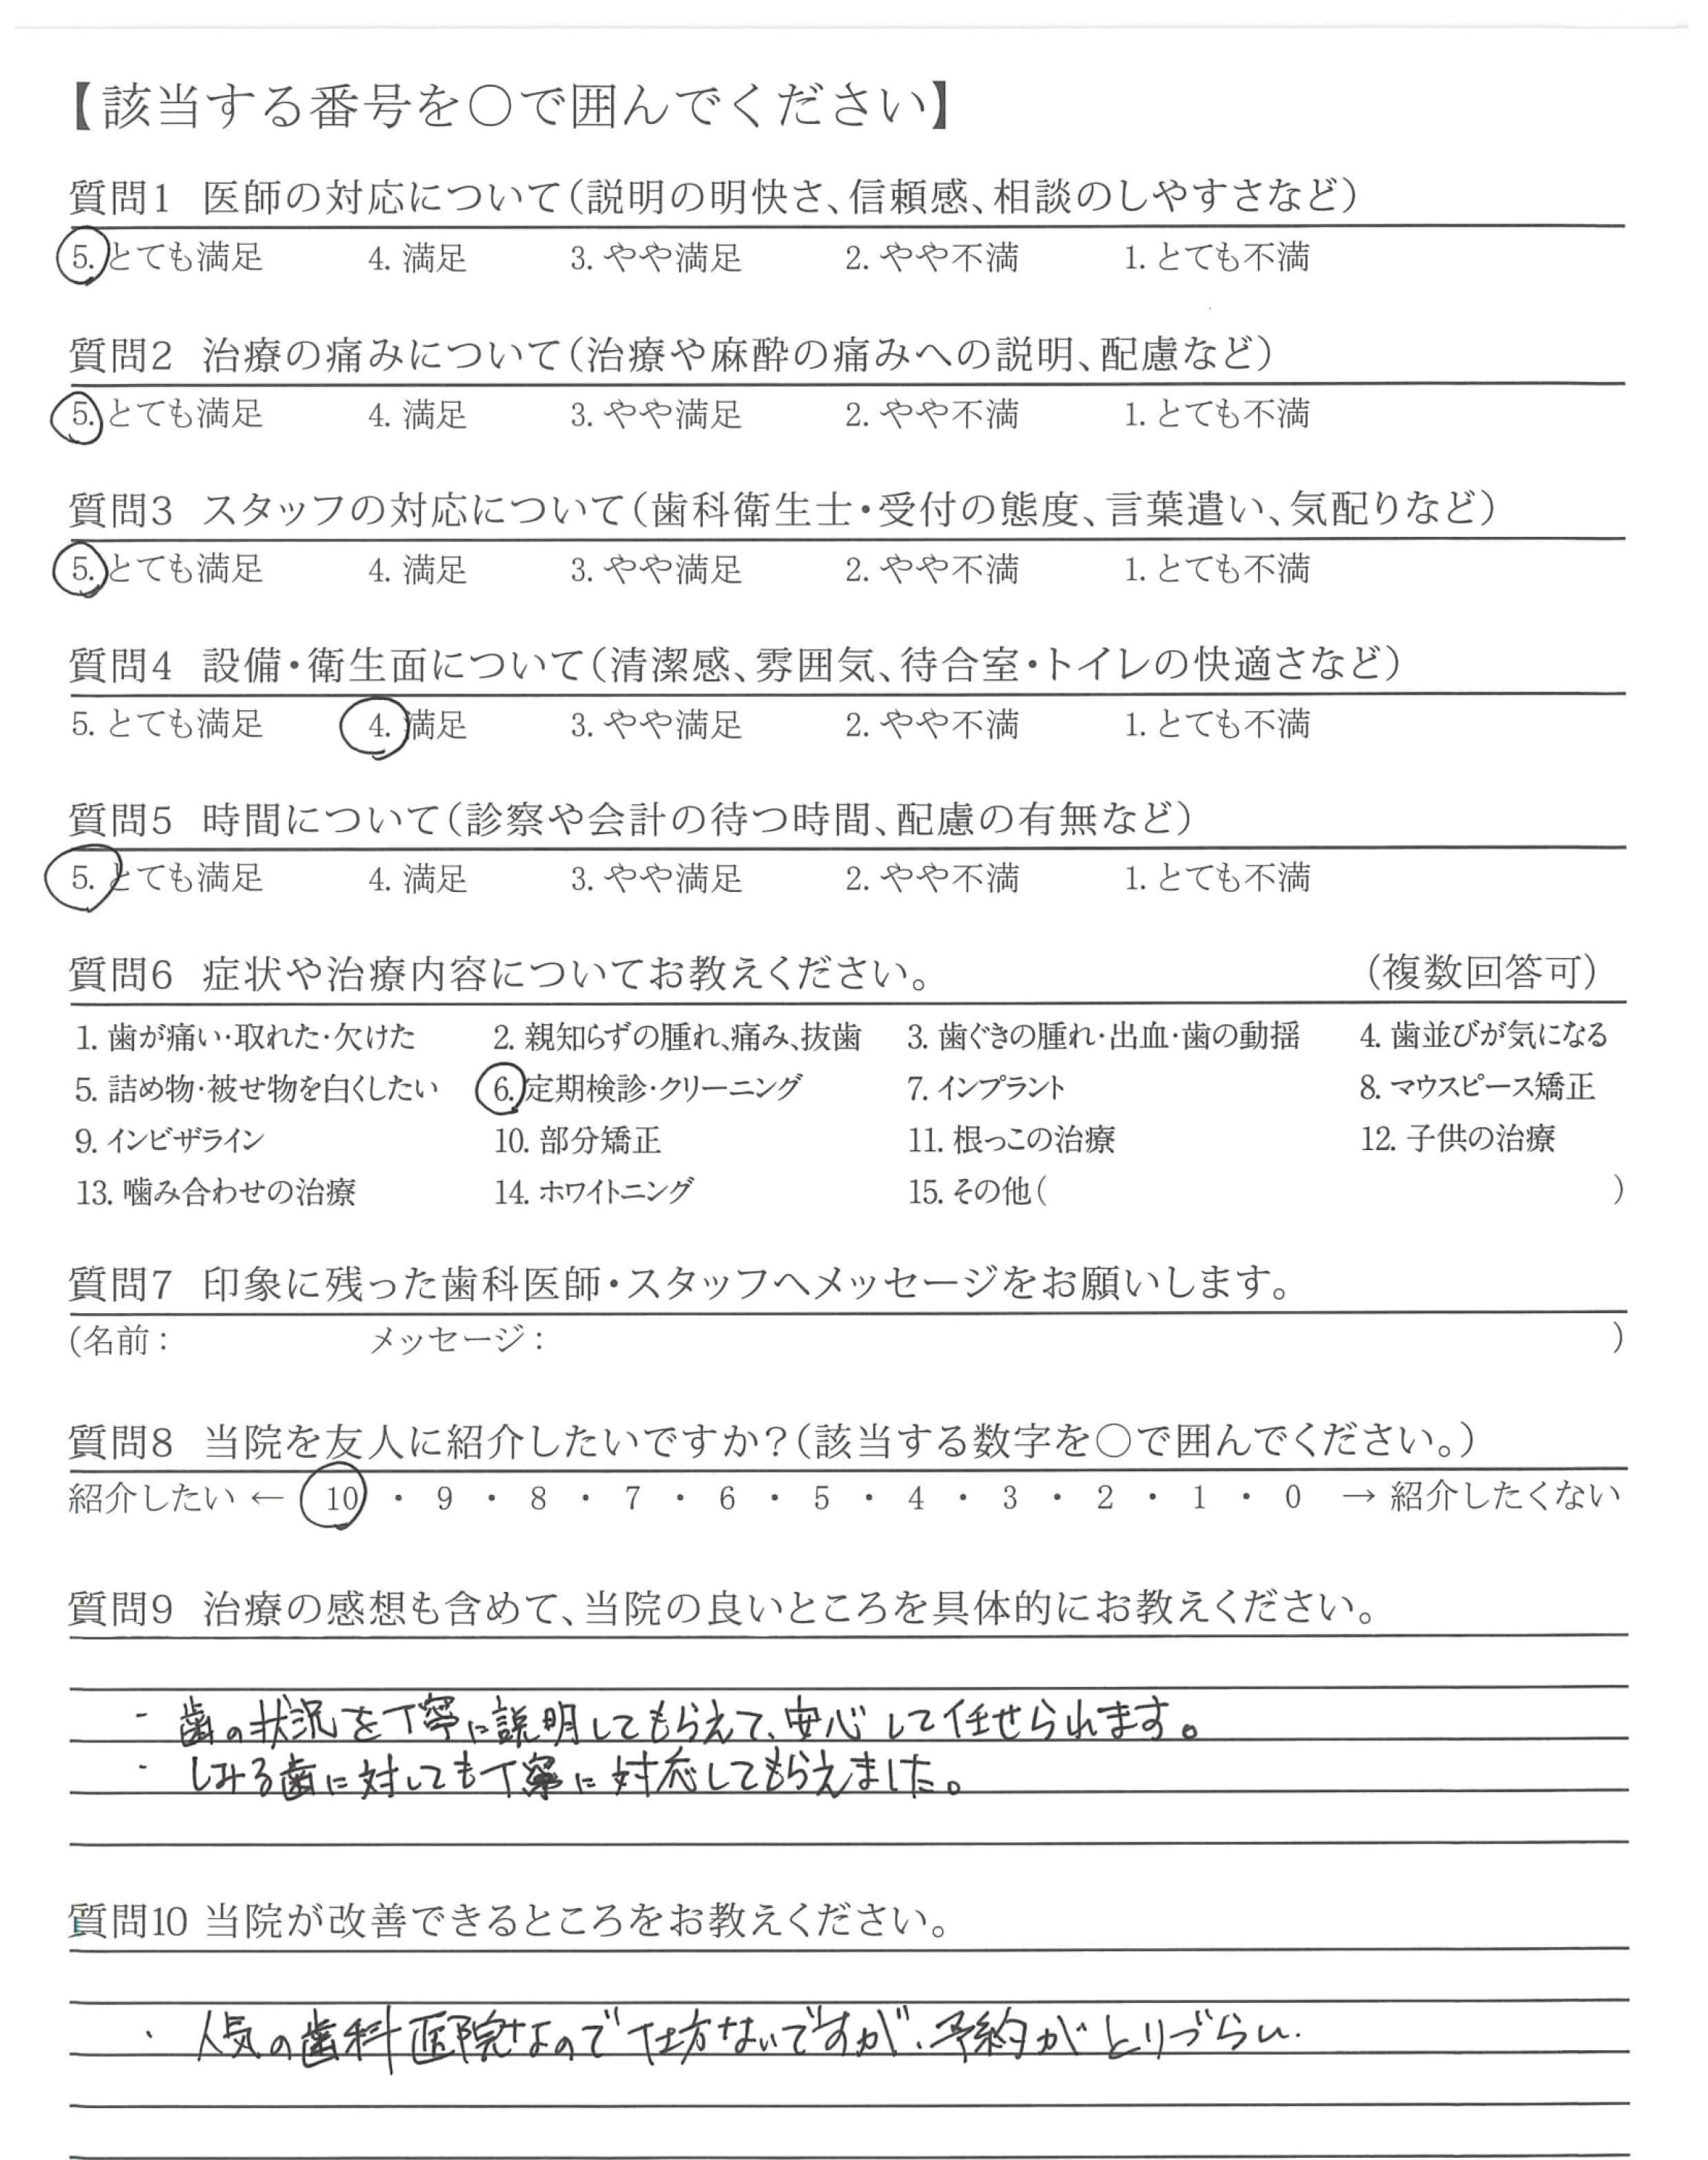 【該当する番号を〇で囲んでください】
質問1 医師の対応について(説明の明快さ、信頼感、相談のしやすさなど)
5. とても満足 4. 満足 3. やや満足 2. やや不満 1. とても不満
質問2 治療の痛みについて(治療や麻酔の痛みへの説明、配慮など)
5. とても満足 4. 満足 3. やや満足 2. やや不満 1. とても不満
質問3 スタッフの対応について(歯科衛生士・受付の態度、言葉遣い、気配りなど)
5. とても満足 4. 満足 3. やや満足 2. やや不満 1. とても不満
質問4 設備・衛生面について(清潔感、雰囲気、待合室・トイレの快適さなど)
5. とても満足 4. 満足 3. やや満足 2. やや不満 1. とても不満
質問5 時間について(診察や会計の待つ時間、配慮の有無など)
5. とても満足 4. 満足 3. やや満足 2. やや不満 1. とても不満
質問6 症状や治療内容についてお教えください。 (複数回答可)
1. 歯が痛い・取れた・欠けた 2. 親知らずの腫れ、痛み、抜歯 3. 歯ぐきの腫れ・出血・歯の動揺 4. 歯並びが気になる
5. 詰め物・被せ物を白くしたい 6. 定期検診・クリーニング 7. インプラント 8. マウスピース矯正
9. インビザライン 10. 部分矯正 11. 根っこの治療 12. 子供の治療
13. 噛み合わせの治療 14. ホワイトニング 15. その他( )
質問7 印象に残った歯科医師・スタッフへメッセージをお願いします。
(名前: メッセージ: )
質問8 当院を友人に紹介したいですか?(該当する数字を〇で囲んでください。)
紹介したい ← 10 ・ 9 ・ 8 ・ 7 ・ 6 ・ 5 ・ 4 ・ 3 ・ 2 ・ 1 ・ 0 → 紹介したくない
質問9 治療の感想も含めて、当院の良いところを具体的にお教えください。
・歯の状況を丁寧に説明してもらえて、安心して任せられます。
・しみる歯に対しても丁寧に対応してもらえました。
質問10 当院が改善できるところをお教えください。
・人気の歯科医院なので仕方ないですが、予約がとりづらい.